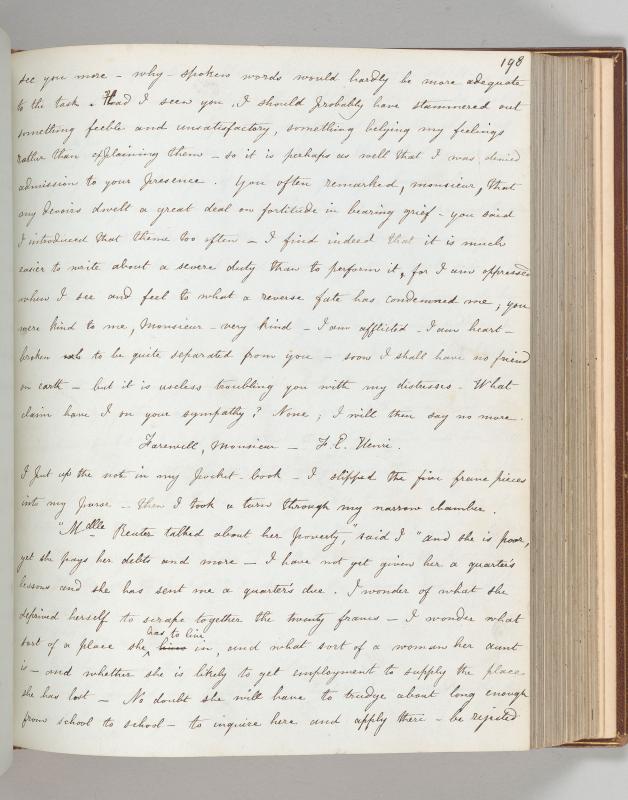 198
see you more – why – spoken words would hardly be more adequate
to the task. Had I seen you, I should probably have stammered out
something feeble and unsatisfactory, something belying my feelings
rather than explaining them – so it is perhaps as well that I was denied
admission to your presence. You often remarked, monsieur, that
my devoirs dwelt a great deal on fortitude in bearing grief – you said
I introduced that theme too often – I find indeed that it is much
easier to write about a severe duty than to perform it, for I am oppressed
when I see and feel to what a reverse fate has condemned me; you
were kind to me, Monsieur – very kind – I am afflicted – I am heart-
broken to be quite separated from you – soon I shall have no friend
on earth – but it is useless troubling you with my distresses – What
claim have I on your sympathy? None; I will then say no more.
Farewell, Monsieur – F. E. Henri.
I put up the note in my pocket-book – I slipped the five franc pieces
into my purse – then I took a turn through my narrow chamber.
"Mdlle Reuter talked about her poverty," said I "and she is poor,
yet she pays her debts and more – I have not yet given her a quarter's
lessons and she has sent me a quarter's due. I wonder of what she
deprived herself to scrape together the twenty francs – I wonder what
sort of a place she has to live in, and what sort of a woman her aunt
is – and whether she is likely to get employment to supply the place
she has lost – No doubt she will have to trudge about long enough
from school to school – to inquire here and apply there – be rejected